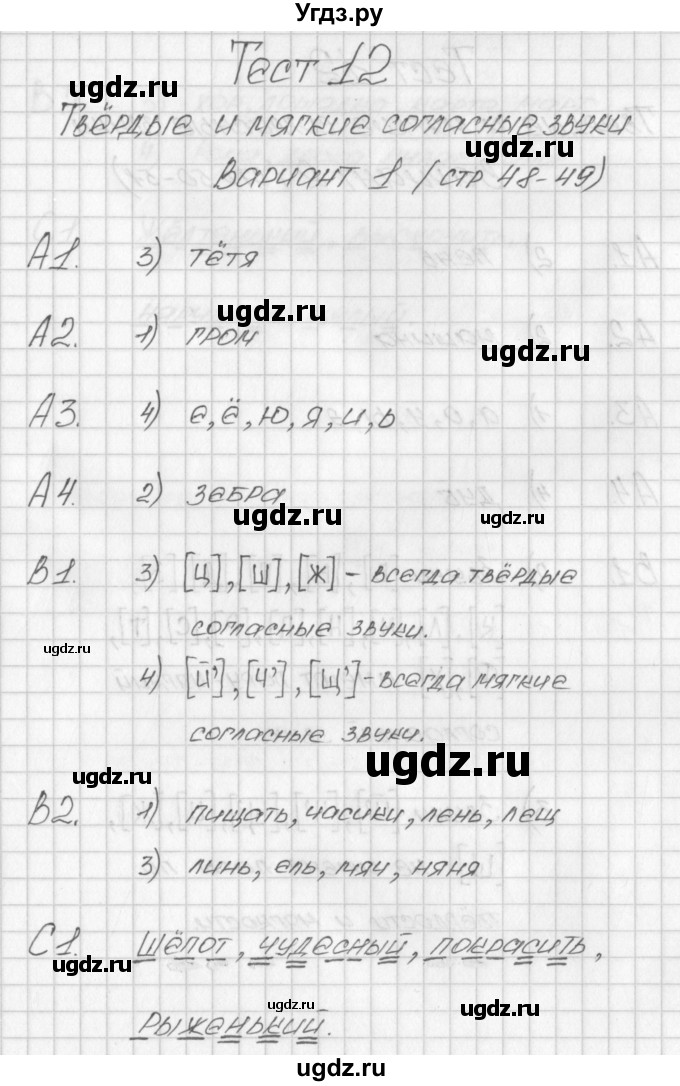 Угдз.ру
Тест 12
ugdz.ru
Твёрдые и мягкие согласные звуки
ugdz.ru
Вариант 1 (стр 48-49)
ugdz.ru
А1. 3) тётя
ugdz.ru
А2. 1) гром
ugdz.ru
А3. 4) е, ё, ю, я, и, ь
А4. 2) зебра
ugdz.ru
ugdz.ru
В1. 3) [ц], [ш], [ж] - всегда твёрдые
согласные звуки.
ugdz.ru
4) [й'], [ч'], [щ'] - всегда мягкие
согласные звуки.
ugdz.ru
ugdz.ru
В2. 1) пищать, часики, лень, лещ
3) линь, ель, мяч, няня
ugdz.ru
С1. Шёпот, чудесный, покрасить,
ugdz.ru
ugdz.ru
ugdz.ru
рыженький.
ugdz.ru
ugdz.ru